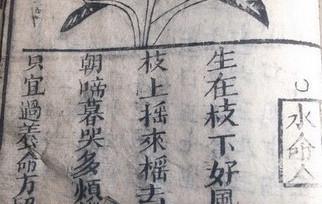 水命人
生在枝下好風
枝上搖來搖去
朝啼暮哭多煩
只宜過養命方